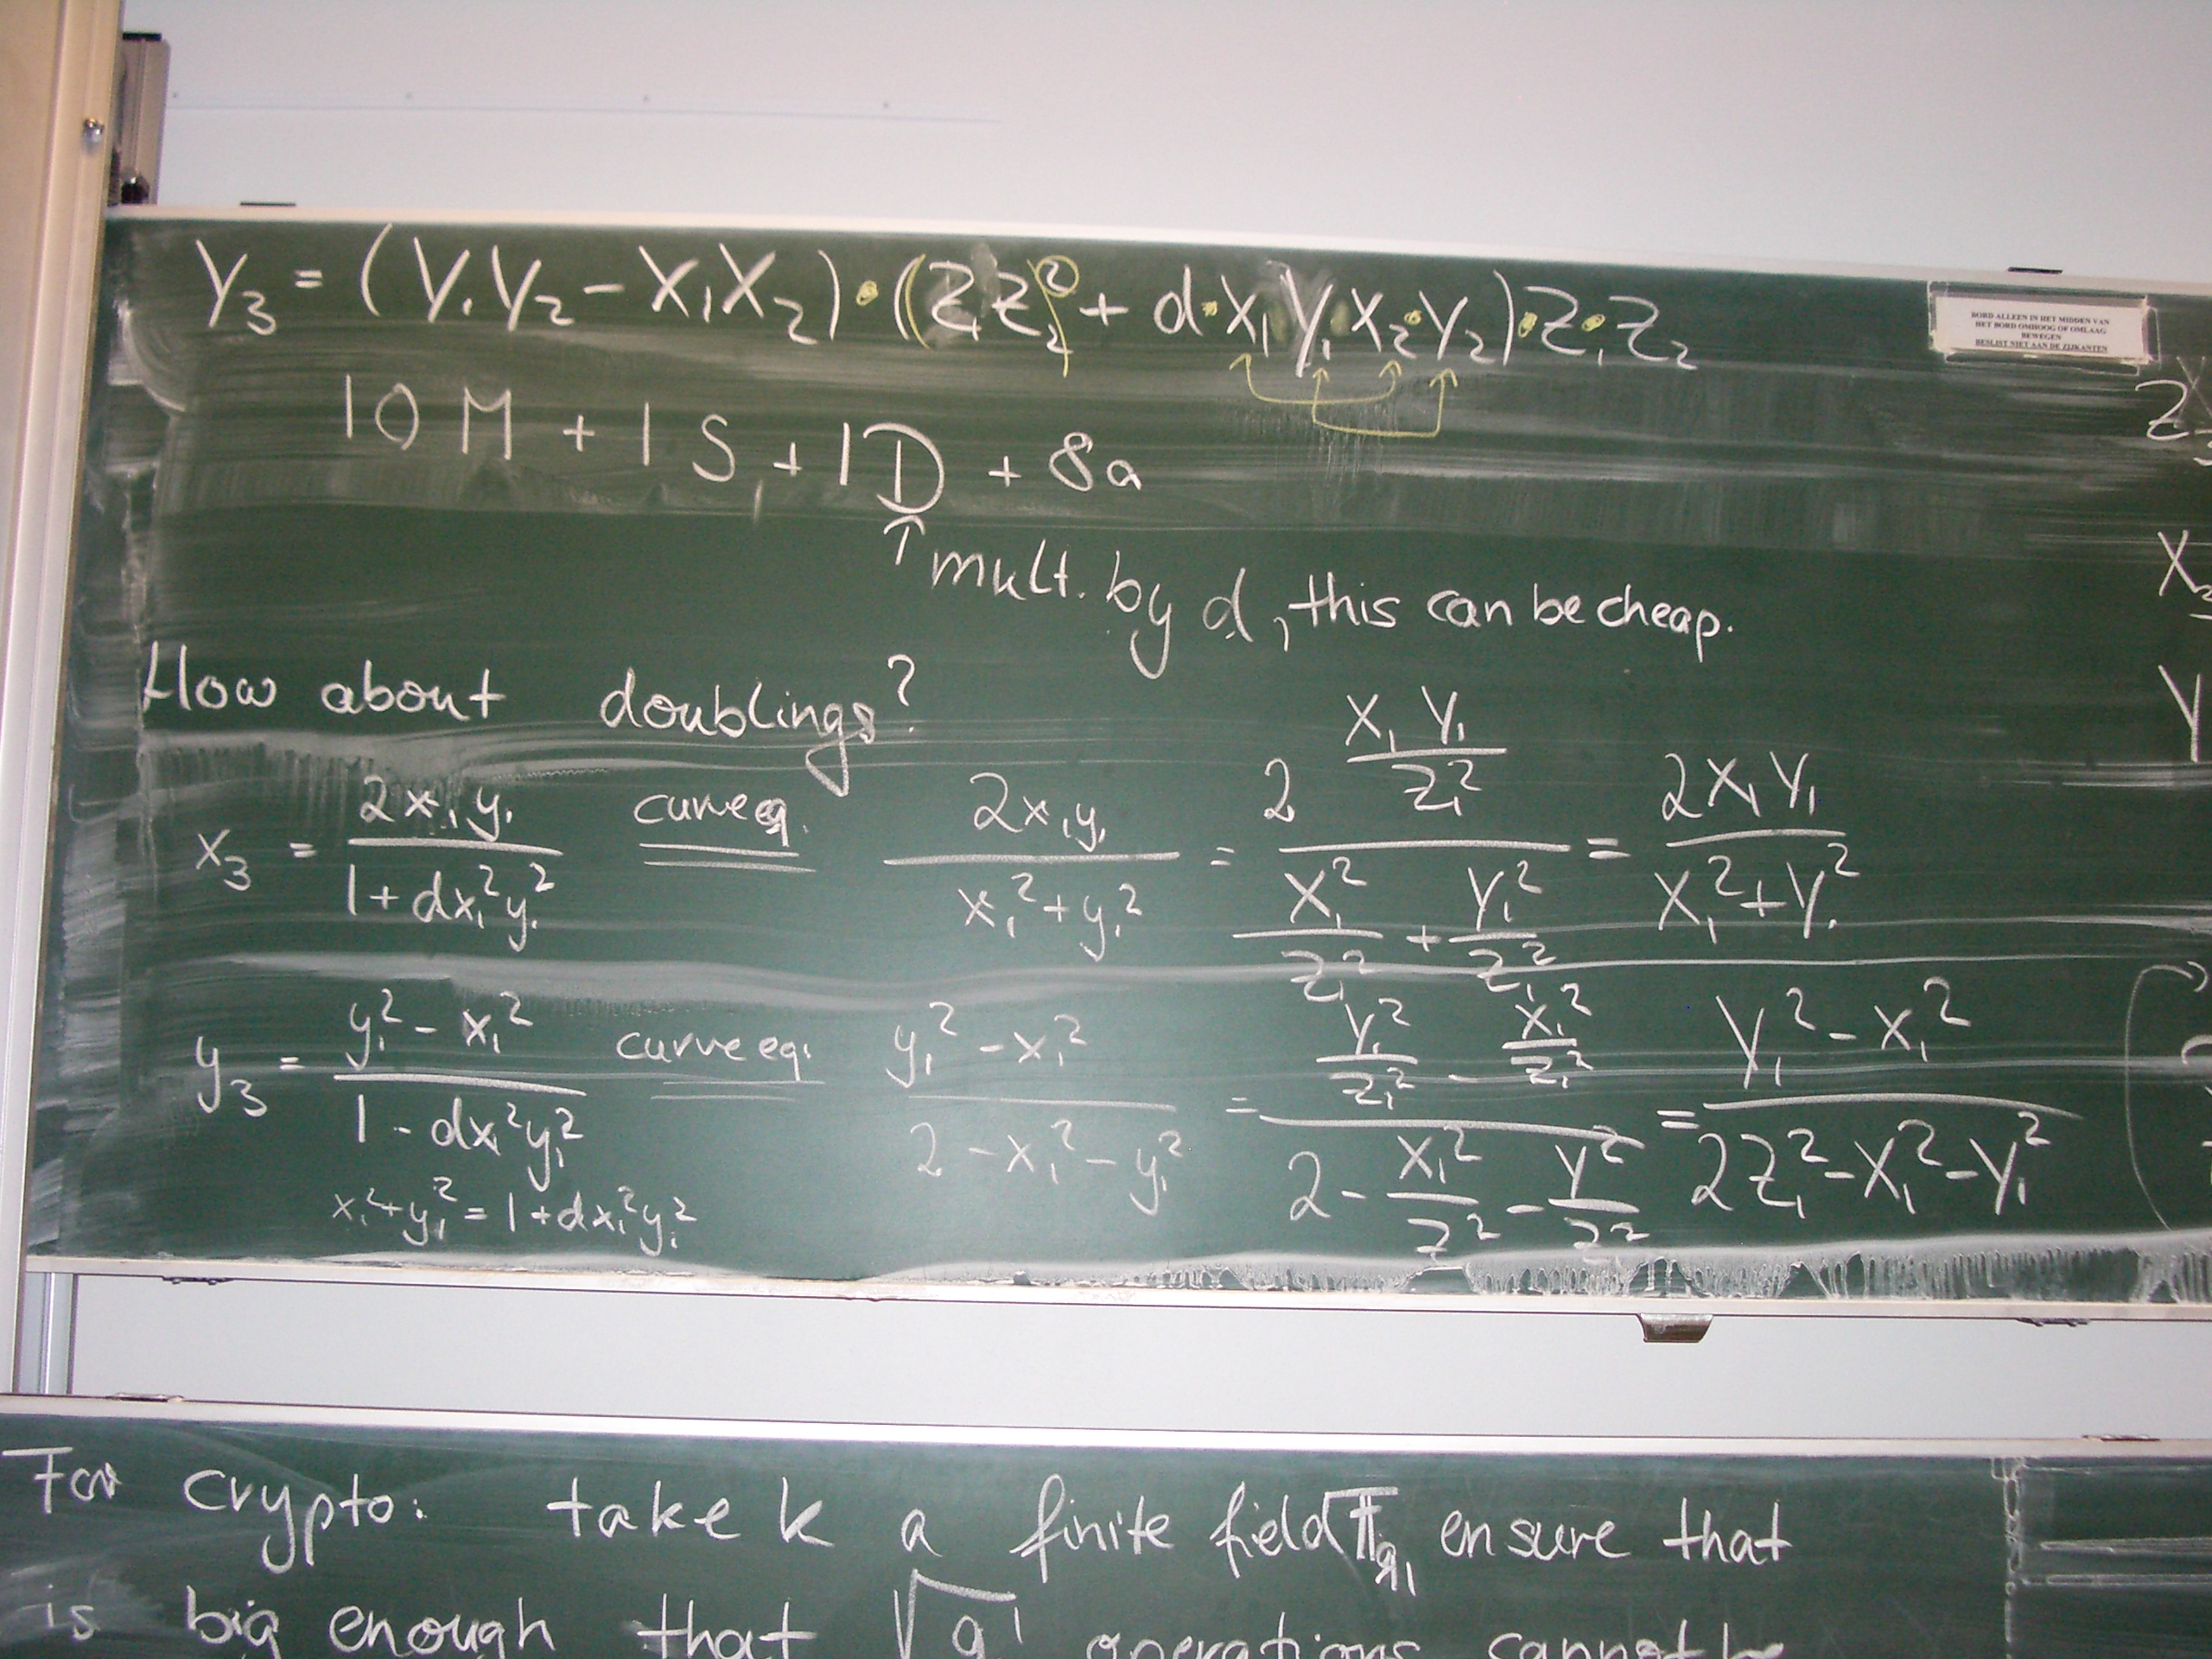 Y₃ = (Y₁Y₂ - X₁X₂)·(Z₁Z₂)² + d·X₁Y₁·X₂·Y₂)·Z₁·Z₂
BORD ALLEEN IN HET MIDDEN VAN
HET BORD OMHOOG OF OMLAAG
BEWEGEN
BESLIST NIET AAN DE ZIJKANTEN
10M + 1S + 1D + 8a
↑ mult. by d, this can be cheap.
How about doublings?
x₃ = 2x₁y₁ / (1+dx₁²y₁²) curve eq. = 2x₁y₁ / (x₁²+y₁²) = 2 (X₁Y₁/Z₁²) / (X₁²/Z₁² + Y₁²/Z₁²) = 2X₁Y₁ / (X₁²+Y₁²)
y₃ = (y₁² - x₁²) / (1 - dx₁²y₁²) curve eq. = (y₁² - x₁²) / (2 - x₁² - y₁²) = (Y₁²/Z₁² - X₁²/Z₁²) / (2 - X₁²/Z² - Y²/Z²) = (Y₁² - X₁²) / (2Z₁² - X₁² - Y₁²)
x₁²+y₁² = 1+dx₁²y₁²
For crypto: take k a finite field 𝔽q, ensure that
is big enough that √q operations cannot be